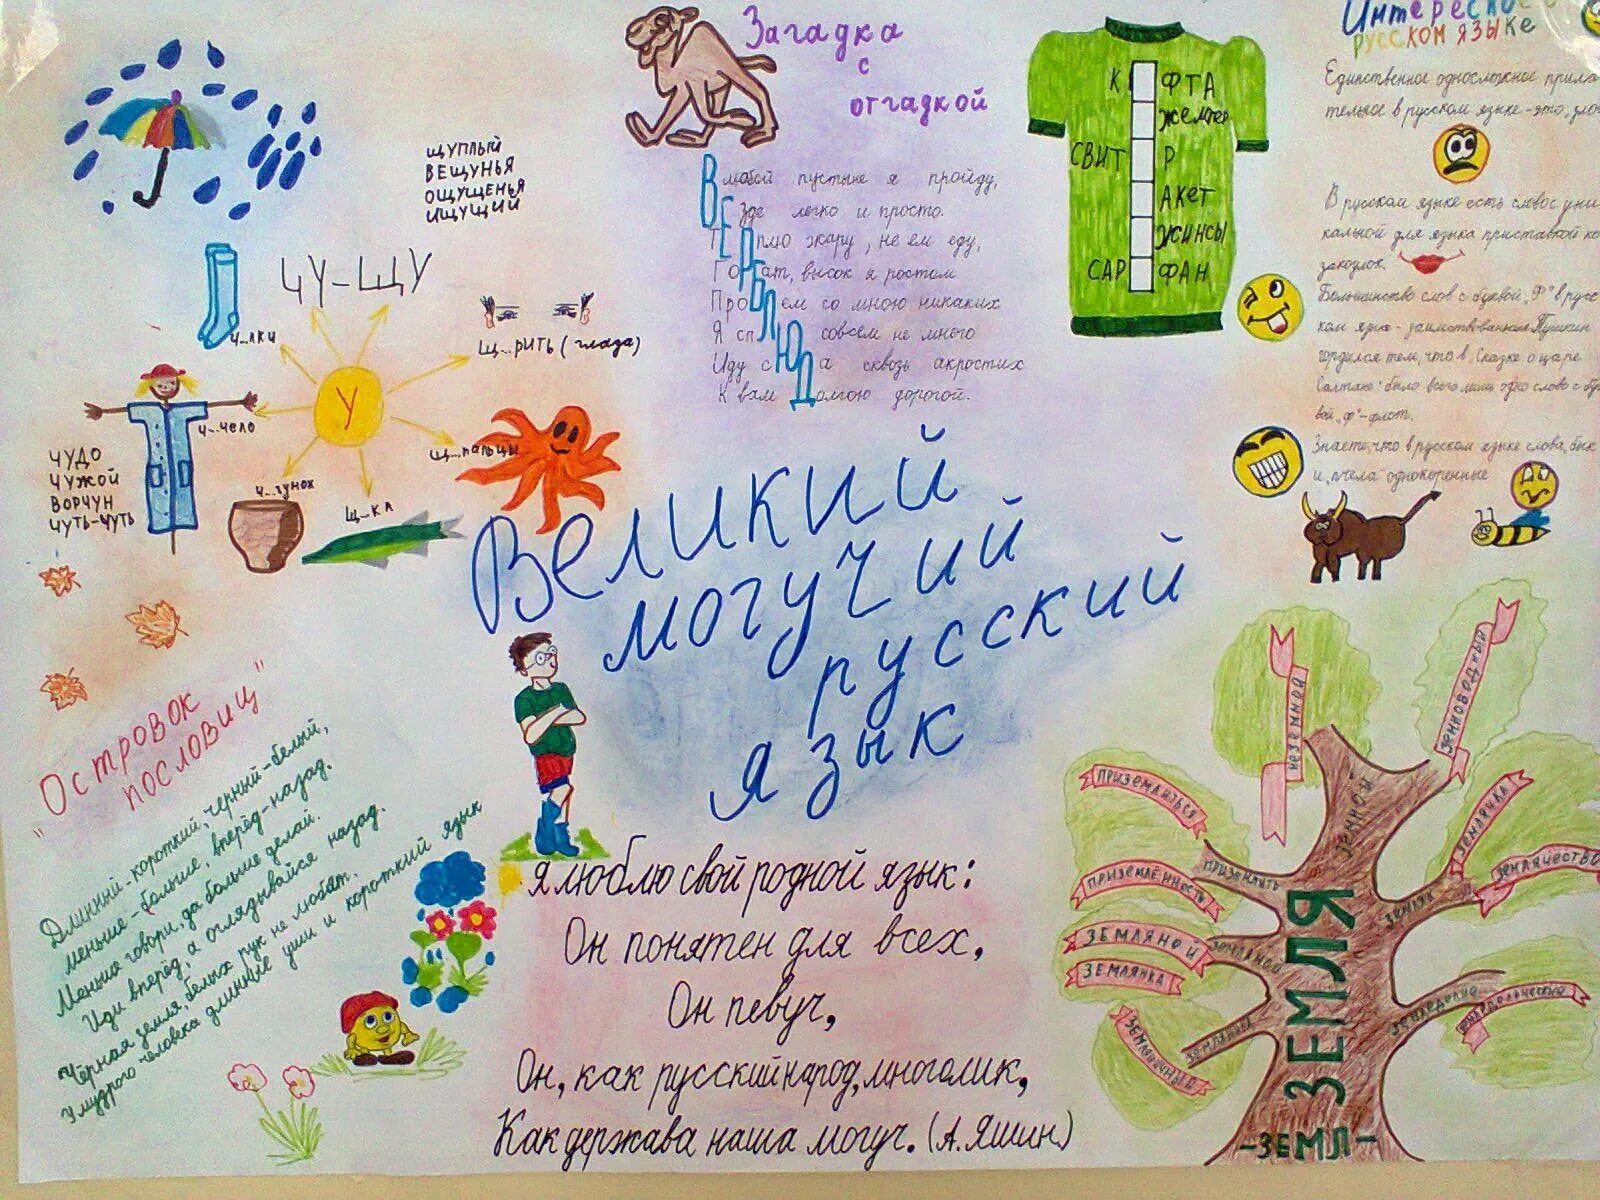 ЩУПЛЫЙ
ВЕЩУНЬЯ
ОЩУЩЕНЬЯ
ИЩУЩИЙ
ЧУ-ЩУ
Ч...ЛКИ
Щ...РИТЬ (глаза)
У
Ч...ЧЕЛО
Щ...ПАЛЬЦЫ
Ч...ГУНОК
Щ...КА
ЧУДО
ЧУЖОЙ
ВОРЧУН
ЧУТЬ-ЧУТЬ
"Островок
пословиц"
Длинный-короткий, чёрный-белый,
меньше-больше, вперёд-назад.
Меньше говори, да больше делай.
Иди вперёд, а оглядывайся назад.
Чёрная земля белых рук не любит.
У мудрого человека длинные уши и короткий язык
Загадка
с
отгадкой
В любой пустыне я пройду,
Везде легко и просто.
Терплю жару, не ем еду,
Горбат, высок я ростом
Проблем со мною никаких
Я сплю совсем не много
Иду сюда сквозь акростих
К вам долгою дорогой.
Великий
могучий
русский
язык
Я люблю свой родной язык:
Он понятен для всех,
Он певуч,
Он, как русский народ, многолик,
Как держава наша могуч. (А.Яшин)
К ФТА
ЖЕМПЕР
СВИТ Р
АКЕТ
ЖИНСЫ
САР ФАН
Интересное о
русском языке
Единственное односложное прила-
тельное в русском языке-это "зло
В русском языке есть слово с уни
кальной для языка приставкой ко
закоулок.
Большинство слов с буквой "Ф" в русс
ком языке - заимствованные Пушкин
гордился тем, что в "Сказке о царе
Салтане" было всего лишь одно слово с бу
вой "ф"-флот.
Знаете, что в русском языке слова "бык
и "пчела" однокоренные
НЕЗЕМНОЙ
ЗЕМНОВОДНЫЙ
ЗЕМНОЙ
ПРИЗЕМЛИТЬСЯ
ПРИЗЕМЛИТЬ
ПРИЗЕМЛЁННОСТЬ
ЗЕМЛЯЧКА
ЗЕМЛЯЧЕСТВО
ЗЕМЛЯК
ЗЕМЛЯНОЙ
ЗЕМЛЯНОЙ
ЗЕМЛЯНКА
ЗЕМЛЯНИКА
ЗЕМЛЯНИЧНЫЙ
ЗЕМЛЯ
-ЗЕМЛ-